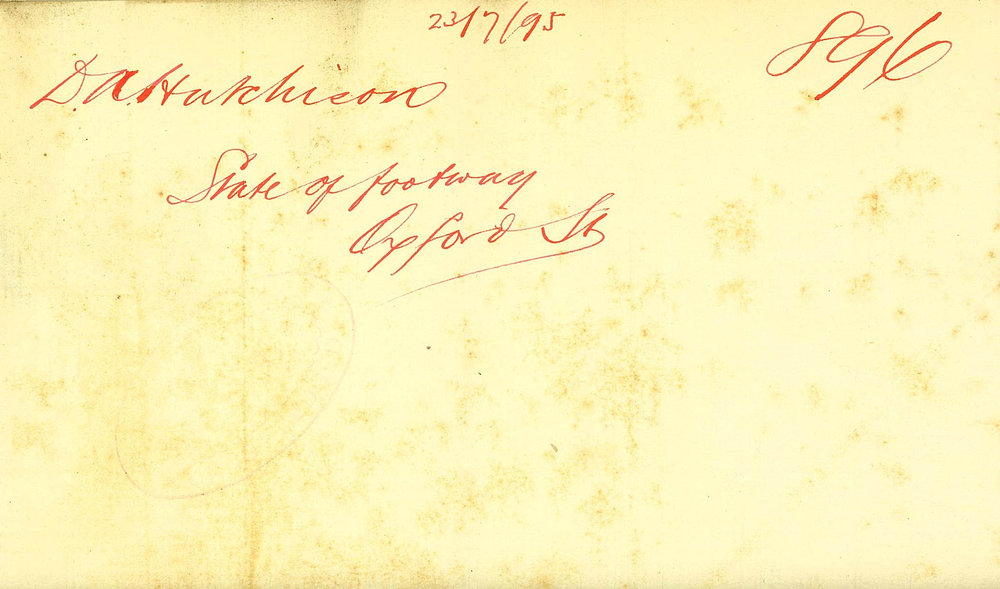 23/7/95
896
D.A. Hutchison
State of footway
Oxford St